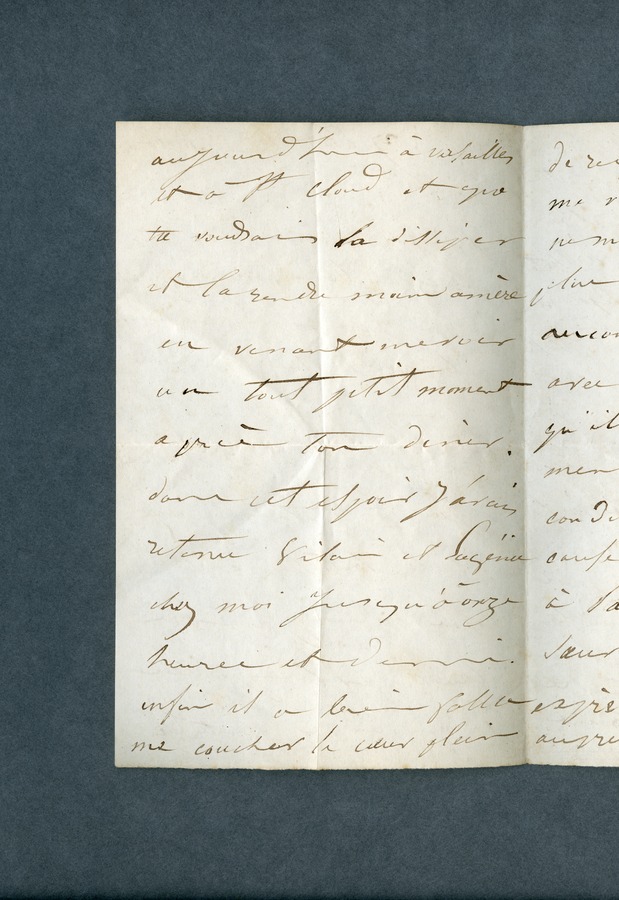 aujourd'hui à versailles
et à St Cloud et que
tu voudrais la dissiper
et la rendre moins amère
en venant me voir
un tout petit moment
après ton diner.
dans cet espoir j'avais
retenu Vilain et Eugénie
chez moi jusqu'à onze
heures et demi.
enfin il a bien fallu
me coucher le cœur plein
de
me
ne m
plus
avec
qu'il
men
à la
sœur